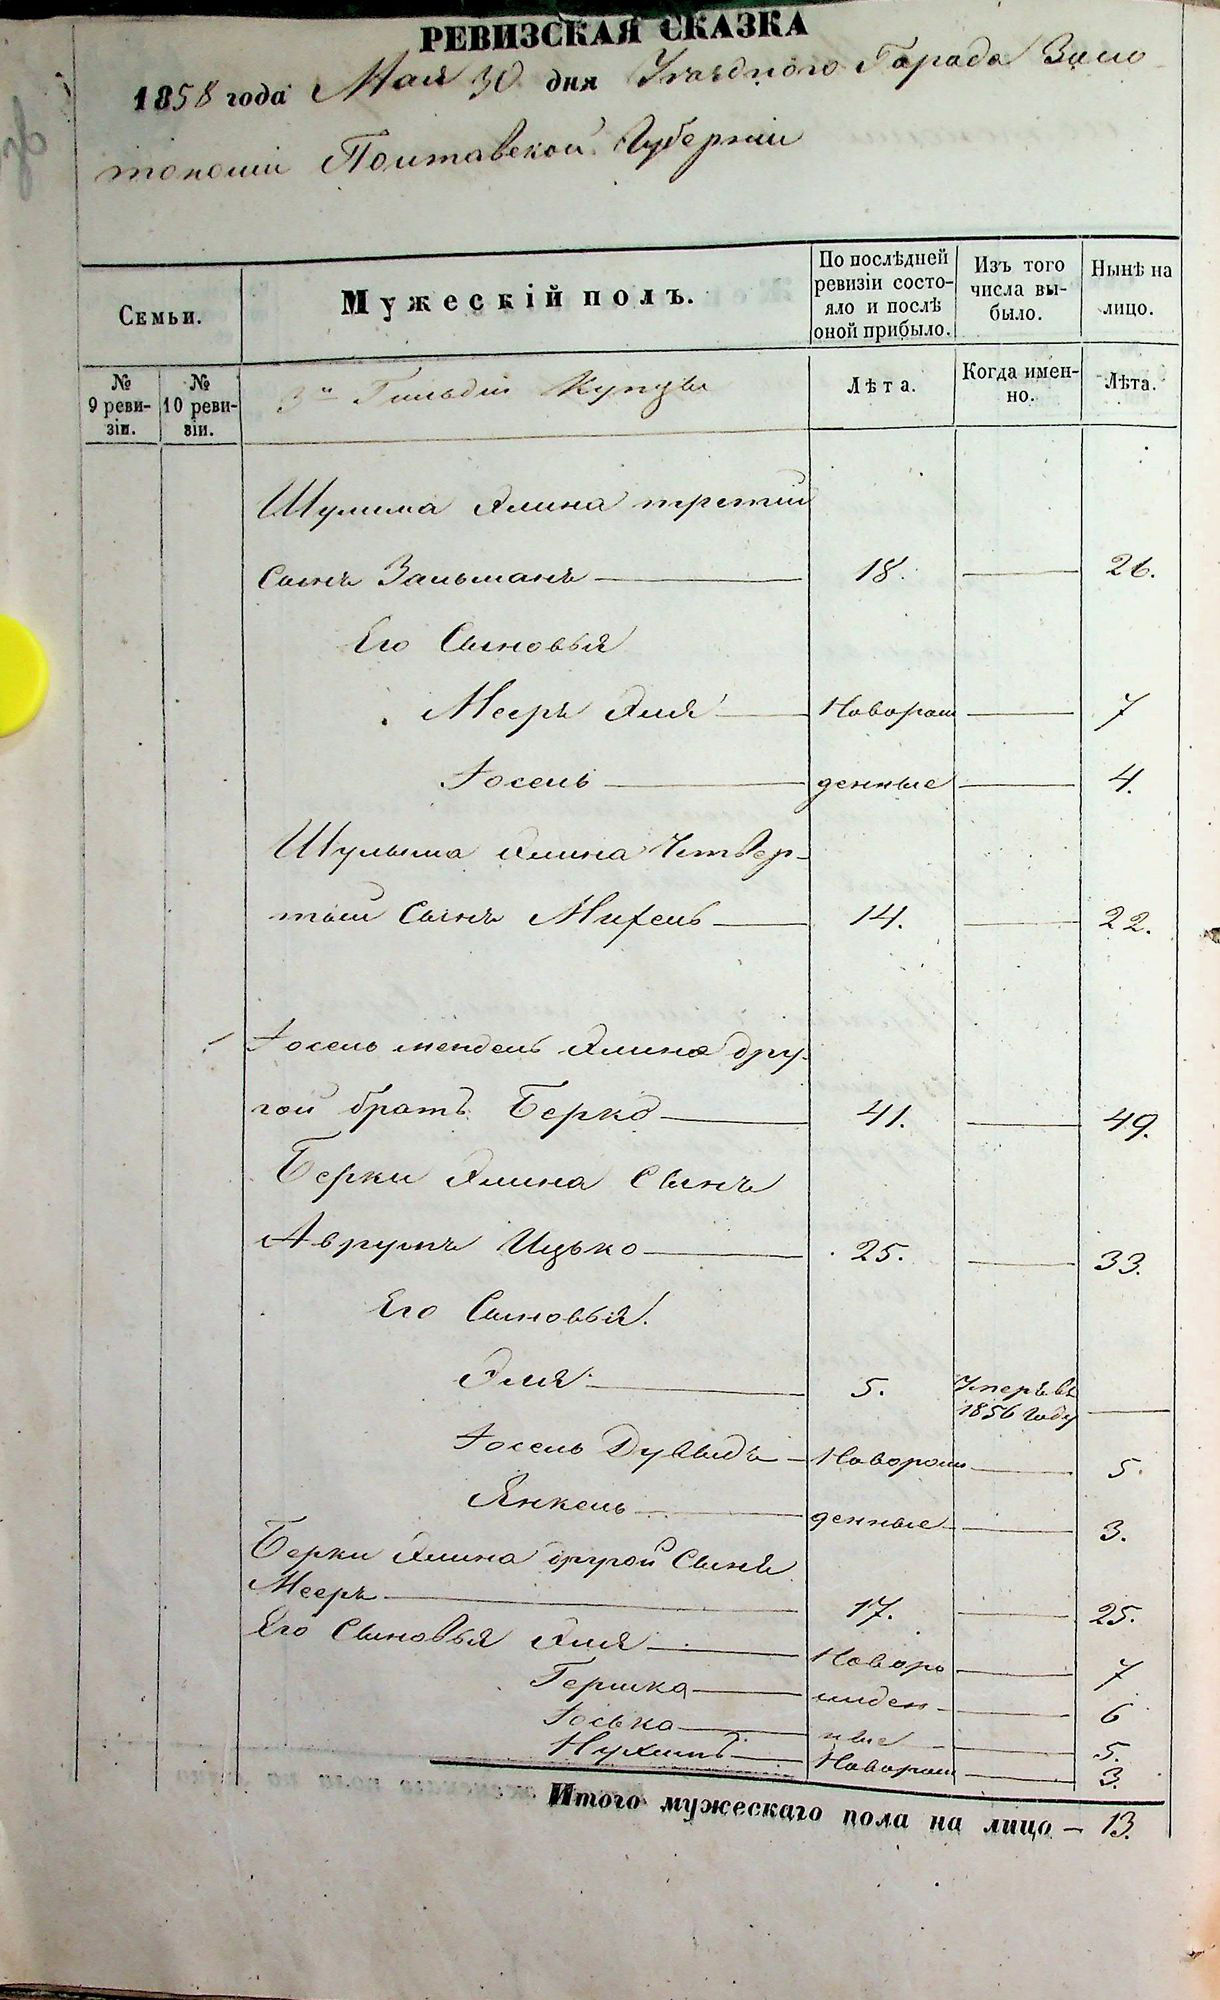 РЕВИЗСКАЯ СКАЗКА
1858 года Мая 30 дня Уѣзднаго Города Золо
тоноши Полтавской Губерніи
Семьи.
Мужескій полъ.
По послѣдней ревизіи состояло и послѣ оной прибыло.
Изъ того числа выбыло.
Нынѣ на лицо.
№ 9 ревизіи.
№ 10 ревизіи.
3й Гильдіи Купцы
Лѣта.
Когда именно.
Лѣта.
Шулима Ялина третій
Сынъ Зальманъ — 18. — 26.
Его Сыновья
Мееръ Эля — Новорож — 7
Іосель — денные — 4.
Шулыма Ялина Четвер-
тый Сынъ Михель — 14. — 22.
Іосель мендель Ялина дру-
гой братъ Берко — 41. — 49.
Берки Ялина Сынъ
Аврумъ Ицько — 25. — 33.
Его Сыновья.
Эля — 5. Умеръ въ 1856 году —
Іосель Дувыдъ — Новорож — 5.
Янкель — денные — 3.
Берки Ялина другой Сынъ
Мееръ — 17. — 25.
Его Сыновья Эля — Новоро — 7
Гершко — жден — 6
Іосько — ные — 5.
Нухимъ — Новорож — 3.
Итого мужескаго пола на лицо — 13.